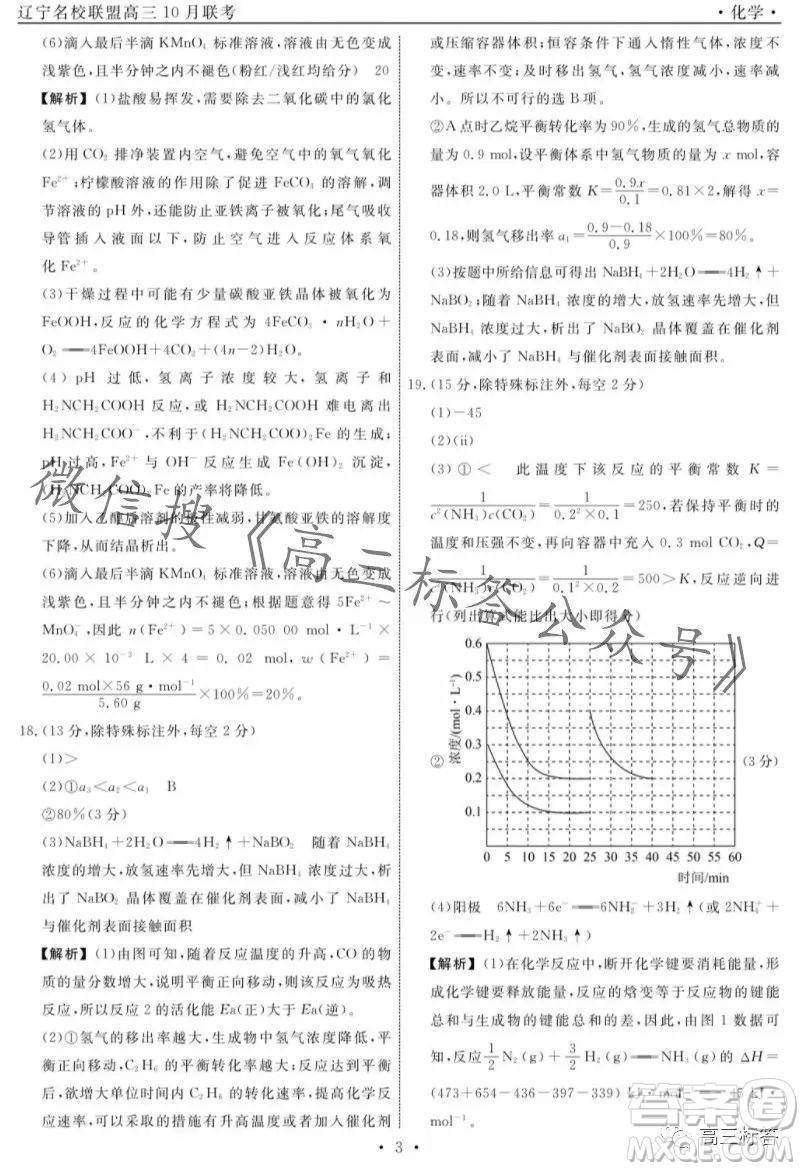 辽宁名校联盟高三10月联考
·化学·
(6)滴入最后半滴 KMnO₄ 标准溶液,溶液由无色变成
浅紫色,且半分钟之内不褪色(粉红/浅红均给分) 20
【解析】(1)盐酸易挥发,需要除去二氧化碳中的氯化
氢气体。
(2)用 CO₂ 排净装置内空气,避免空气中的氧气氧化
Fe²⁺;柠檬酸溶液的作用除了促进 FeCO₃ 的溶解,调
节溶液的 pH 外,还能防止亚铁离子被氧化;尾气吸收
导管插入液面以下,防止空气进入反应体系氧
化 Fe²⁺。
(3)干燥过程中可能有少量碳酸亚铁晶体被氧化为
FeOOH,反应的化学方程式为 4FeCO₃·nH₂O+
O₂══4FeOOH+4CO₂+(4n-2)H₂O。
(4)pH 过低,氢离子浓度较大,氢离子和
H₂NCH₂COOH 反应,或 H₂NCH₂COOH 难电离出
H₂NCH₂COO⁻,不利于(H₂NCH₂COO)₂Fe 的生成;
pH过高,Fe²⁺ 与 OH⁻ 反应生成 Fe(OH)₂ 沉淀,
(H₂NCH₂COO)₂Fe 的产率将降低。
(5)加入乙醇后溶剂的极性减弱,甘氨酸亚铁的溶解度
下降,从而结晶析出。
(6)滴入最后半滴 KMnO₄ 标准溶液,溶液由无色变成
浅紫色,且半分钟之内不褪色;根据题意得 5Fe²⁺~
MnO₄⁻,因此 n(Fe²⁺)=5×0.050 00 mol·L⁻¹×
20.00×10⁻³ L×4=0.02 mol,w(Fe²⁺)=
0.02 mol×56 g·mol⁻¹/5.60 g×100%=20%。
18.(13分,除特殊标注外,每空2分)
(1)>
(2)①a₃<a₂<a₁ B
②80%(3分)
(3)NaBH₄+2H₂O══4H₂↑+NaBO₂ 随着 NaBH₄
浓度的增大,放氢速率先增大,但 NaBH₄ 浓度过大,析
出了 NaBO₂ 晶体覆盖在催化剂表面,减小了 NaBH₄
与催化剂表面接触面积
【解析】(1)由图可知,随着反应温度的升高,CO 的物
质的量分数增大,说明平衡正向移动,则该反应为吸热
反应,所以反应2的活化能 Ea(正)大于 Ea(逆)。
(2)①氢气的移出率越大,生成物中氢气浓度降低,平
衡正向移动,C₂H₆ 的平衡转化率越大;反应达到平衡
后,欲增大单位时间内 C₂H₆ 的转化速率,提高化学反
应速率,可以采取的措施有升高温度或者加入催化剂
或压缩容器体积;恒容条件下通入惰性气体,浓度不
变,速率不变;及时移出氢气,氢气浓度减小,速率减
小。所以不可行的选 B 项。
②A 点时乙烷平衡转化率为90%,生成的氢气总物质的
量为0.9 mol,设平衡体系中氢气物质的量为 x mol,容
器体积 2.0 L,平衡常数 K=0.9x/0.1=0.81×2,解得 x=
0.18,则氢气移出率 a₁=(0.9-0.18)/0.9×100%=80%。
(3)按题中所给信息可得出 NaBH₄+2H₂O══4H₂↑+
NaBO₂;随着 NaBH₄ 浓度的增大,放氢速率先增大,但
NaBH₄ 浓度过大,析出了 NaBO₂ 晶体覆盖在催化剂
表面,减小了 NaBH₄ 与催化剂表面接触面积。
19.(15分,除特殊标注外,每空2分)
(1)-45
(2)(ii)
(3)①< 此温度下该反应的平衡常数 K=
1/(c²(NH₃)c(CO₂))=1/(0.2²×0.1)=250,若保持平衡时的
温度和压强不变,再向容器中充入 0.3 mol CO₂,Q=
1/(c²(NH₃)c(CO₂))=1/(0.1²×0.2)=500>K,反应逆向进
行(列出算式能比出大小即得分)
② 浓度/(mol·L⁻¹) (3分)
0.6
0.5
0.4
0.3
0.2
0.1
0 5 10 15 20 25 30 35 40 45 50 55 60
时间/min
(4)阳极 6NH₃+6e⁻══6NH₂⁻+3H₂↑(或 2NH₄⁺+
2e⁻══H₂↑+2NH₃↑)
【解析】(1)在化学反应中,断开化学键要消耗能量,形
成化学键要释放能量,反应的焓变等于反应物的键能
总和与生成物的键能总和的差,因此,由图1数据可
知,反应 1/2 N₂(g)+3/2 H₂(g)══NH₃(g)的 ΔH=
(473+654-436-397-339)
mol⁻¹。
·3·
微信搜《高三标答公众号》
答案圈
高三标答